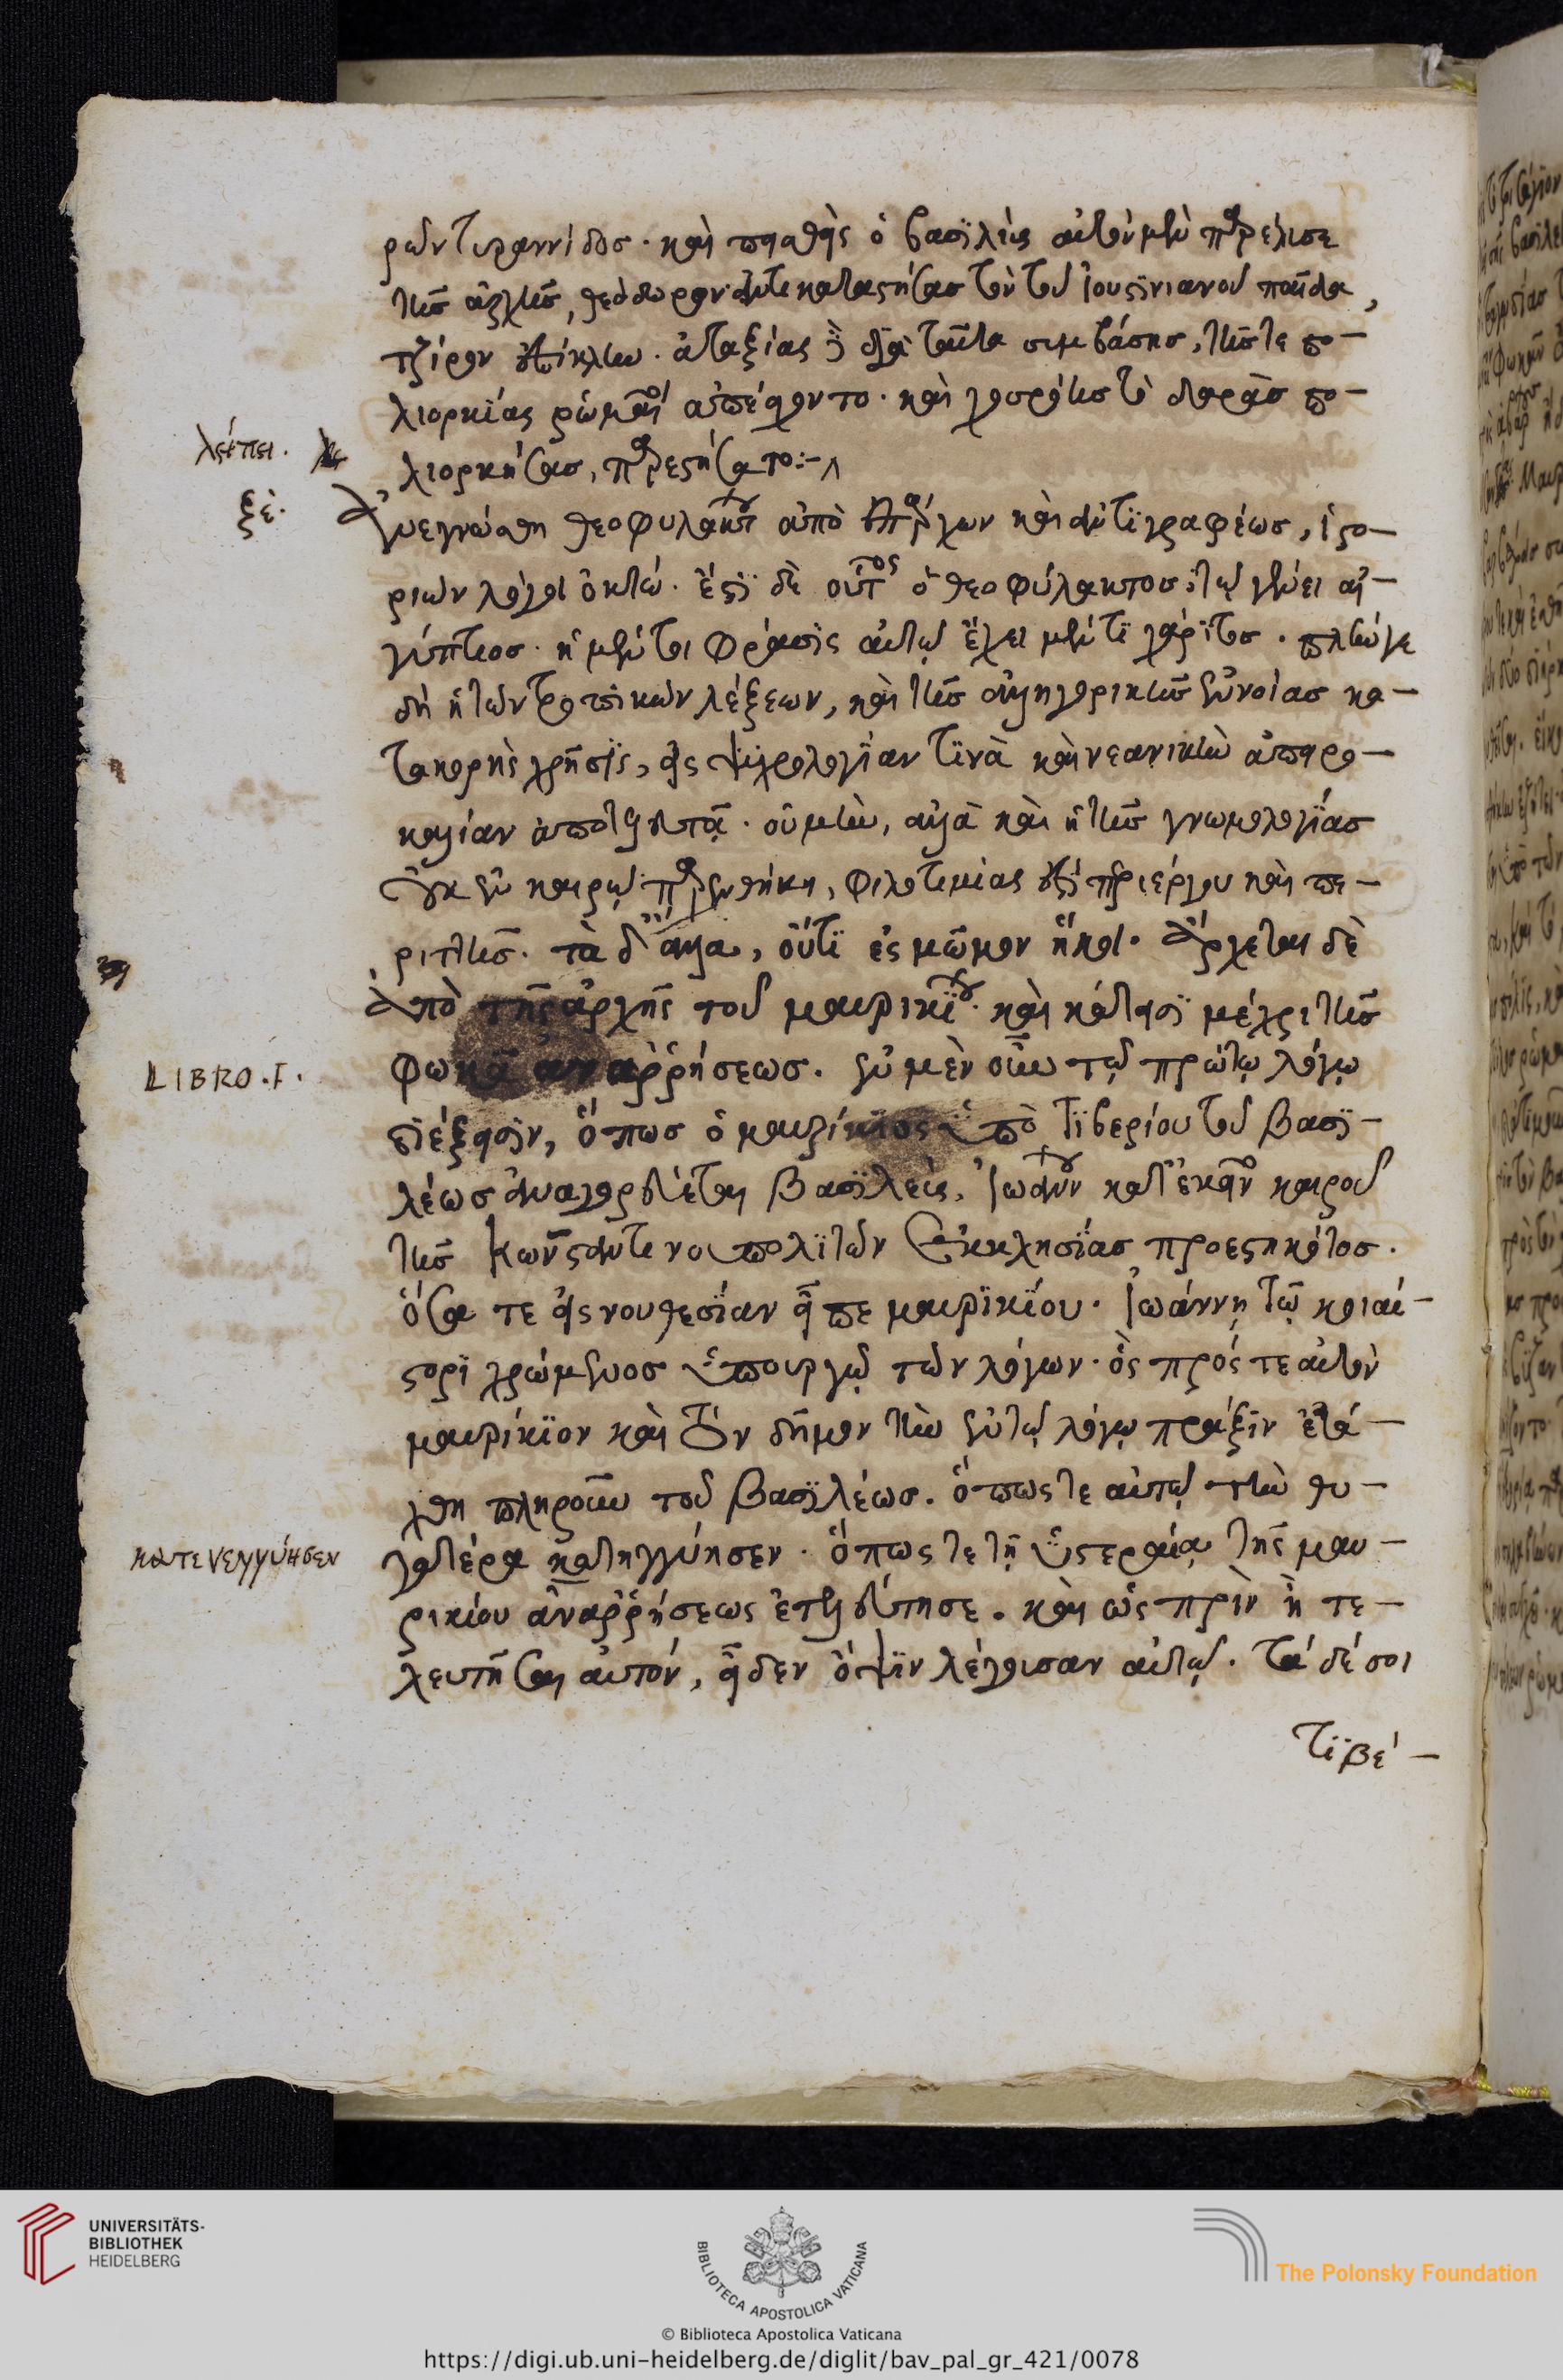 ρῶν τυραννίδος. καὶ πεισθεὶς ὁ βασϊλεὺς αὐτὸν μὲν παρέλυσε
τῆς ἀρχῆς, θεόδωρον ἀντικαταστήσας τὸν τοῦ Ἰουστινιανοῦ παῖδα,
τζίρον ἐπίκλην. ἀταξίας δὲ διὰ ταῦτα συμβάσης, τῆς τε πο-
λιορκίας ῥωμαῖοι ἀπέσχοντο. καὶ χοσρόης τὸ δαρὰς πο-
λιορκήσας, παρεστήσατο:-
λείπει.
ξε.
Ἀνεγνώσθη θεοφυλάκτου ἀπὸ ἐπάρχων καὶ ἀντιγραφέως, ἱστο-
ριῶν λόγοι ὀκτώ. ἔστϊ δὲ οὗτος ὁ θεοφύλακτος τῷ γένει αἰ-
γύπτιος. ἡ μέντοι φράσις αὐτῷ ἔχει μέν τι χάριτος. πλήν γε
δὴ ἡ τῶν τροπικῶν λέξεων, καὶ τῆς ἀλληγορικῆς ἐννοίας κα-
τακορὴς χρῆσις, εἰς ψυχρολογίαν τινὰ καὶ νεανικὴν ἀπειρο-
καλίαν ἀποτελευτᾷ. οὐ μὴν, ἀλλὰ καὶ ἡ τῆς γνωμολογίας
οὐκ ἐν καιρῷ παρενθήκη, φιλοτιμίας ἐστὶ περιέργου καὶ πε-
ριττῆς. τὰ δ' ἄλλα, οὔτι εἰς μῶμον ἥκοι. Ἄρχεται δὲ
ἀπὸ τῆς ἀρχῆς τοῦ μαυρικίου. καὶ κάτεισϊ μέχρι τῆς
LIBRO.I.
φωκᾶ ἀναρρήσεως. ἐν μὲν οὖν τῷ πρώτῳ λόγῳ
διέξεισιν, ὅπως ὁ μαυρίκϊος ὑπὸ Τϊβερίου τοῦ βασϊ-
λέως ἀναγορεύεται βασϊλεὺς, Ἰωάννου κατ' ἐκεῖνο καιροῦ
τῆς Κωνσταντινουπολϊτῶν Ἐκκλησϊας προεστηκότος.
ὅσα τε εἰς νουθεσίαν εἶπε μαυρϊκϊου. Ἰωάννῃ τῷ κοιαί-
στορϊ χρώμενος ὑπουργῷ τῶν λόγων. ὃς πρός τε αὐτὸν
μαυρίκϊον καὶ τὸν δῆμον τὴν ἐν τῷ λόγῳ πρᾶξϊν ἐτά-
χθη πληροῦν τοῦ βασϊλέως. ὅπως τε αὐτῷ τὴν θυ-
κατενεγγύησεν
γατέρα κατηγγύησεν. ὅπως τε τῇ ὑστεραίᾳ τῆς μαυ-
ρικίου ἀναρρήσεως ἐτελεύτησε. καὶ ὡς πρὶν ἢ τε-
λευτῆσαι αὐτόν, εἶδεν ὄψϊν λέγουσαν αὐτῷ. τά δέ σοι
Τϊβέ-
UNIVERSITÄTS-
BIBLIOTHEK
HEIDELBERG
BIBLIOTECA APOSTOLICA VATICANA
The Polonsky Foundation
© Biblioteca Apostolica Vaticana
https://digi.ub.uni-heidelberg.de/diglit/bav_pal_gr_421/0078